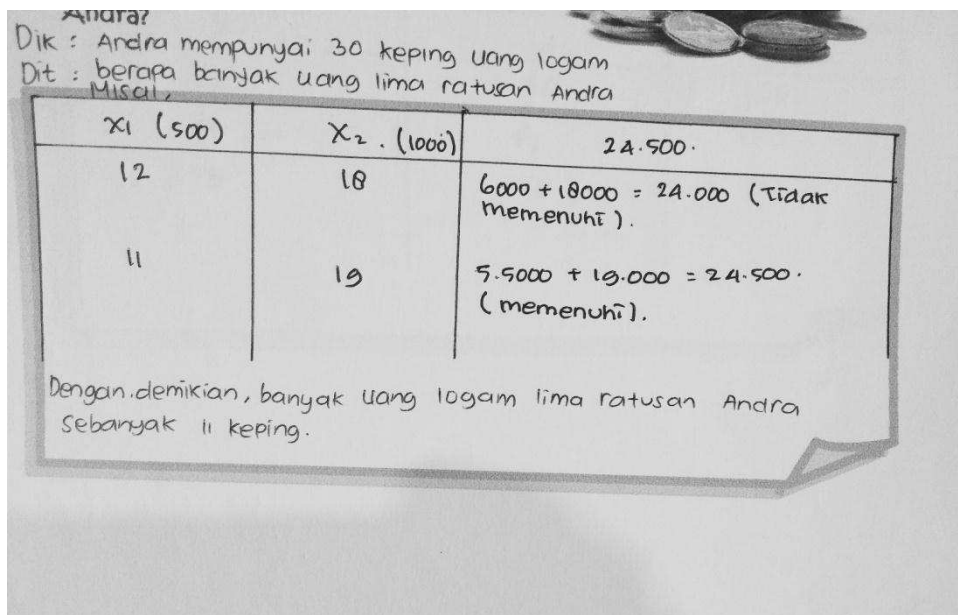 Andra?
Dik : Andra mempunyai 30 keping uang logam
Dit : berapa banyak uang lima ratusan Andra
Misal,
x1 (500) X2 . (1000) 24.500.
12 18 6000 + 18000 = 24.000 (Tidak
memenuhi).
11 19 5.5000 + 19.000 = 24.500.
(memenuhi).
Dengan.demikian, banyak uang logam lima ratusan Andra
sebanyak 11 keping.